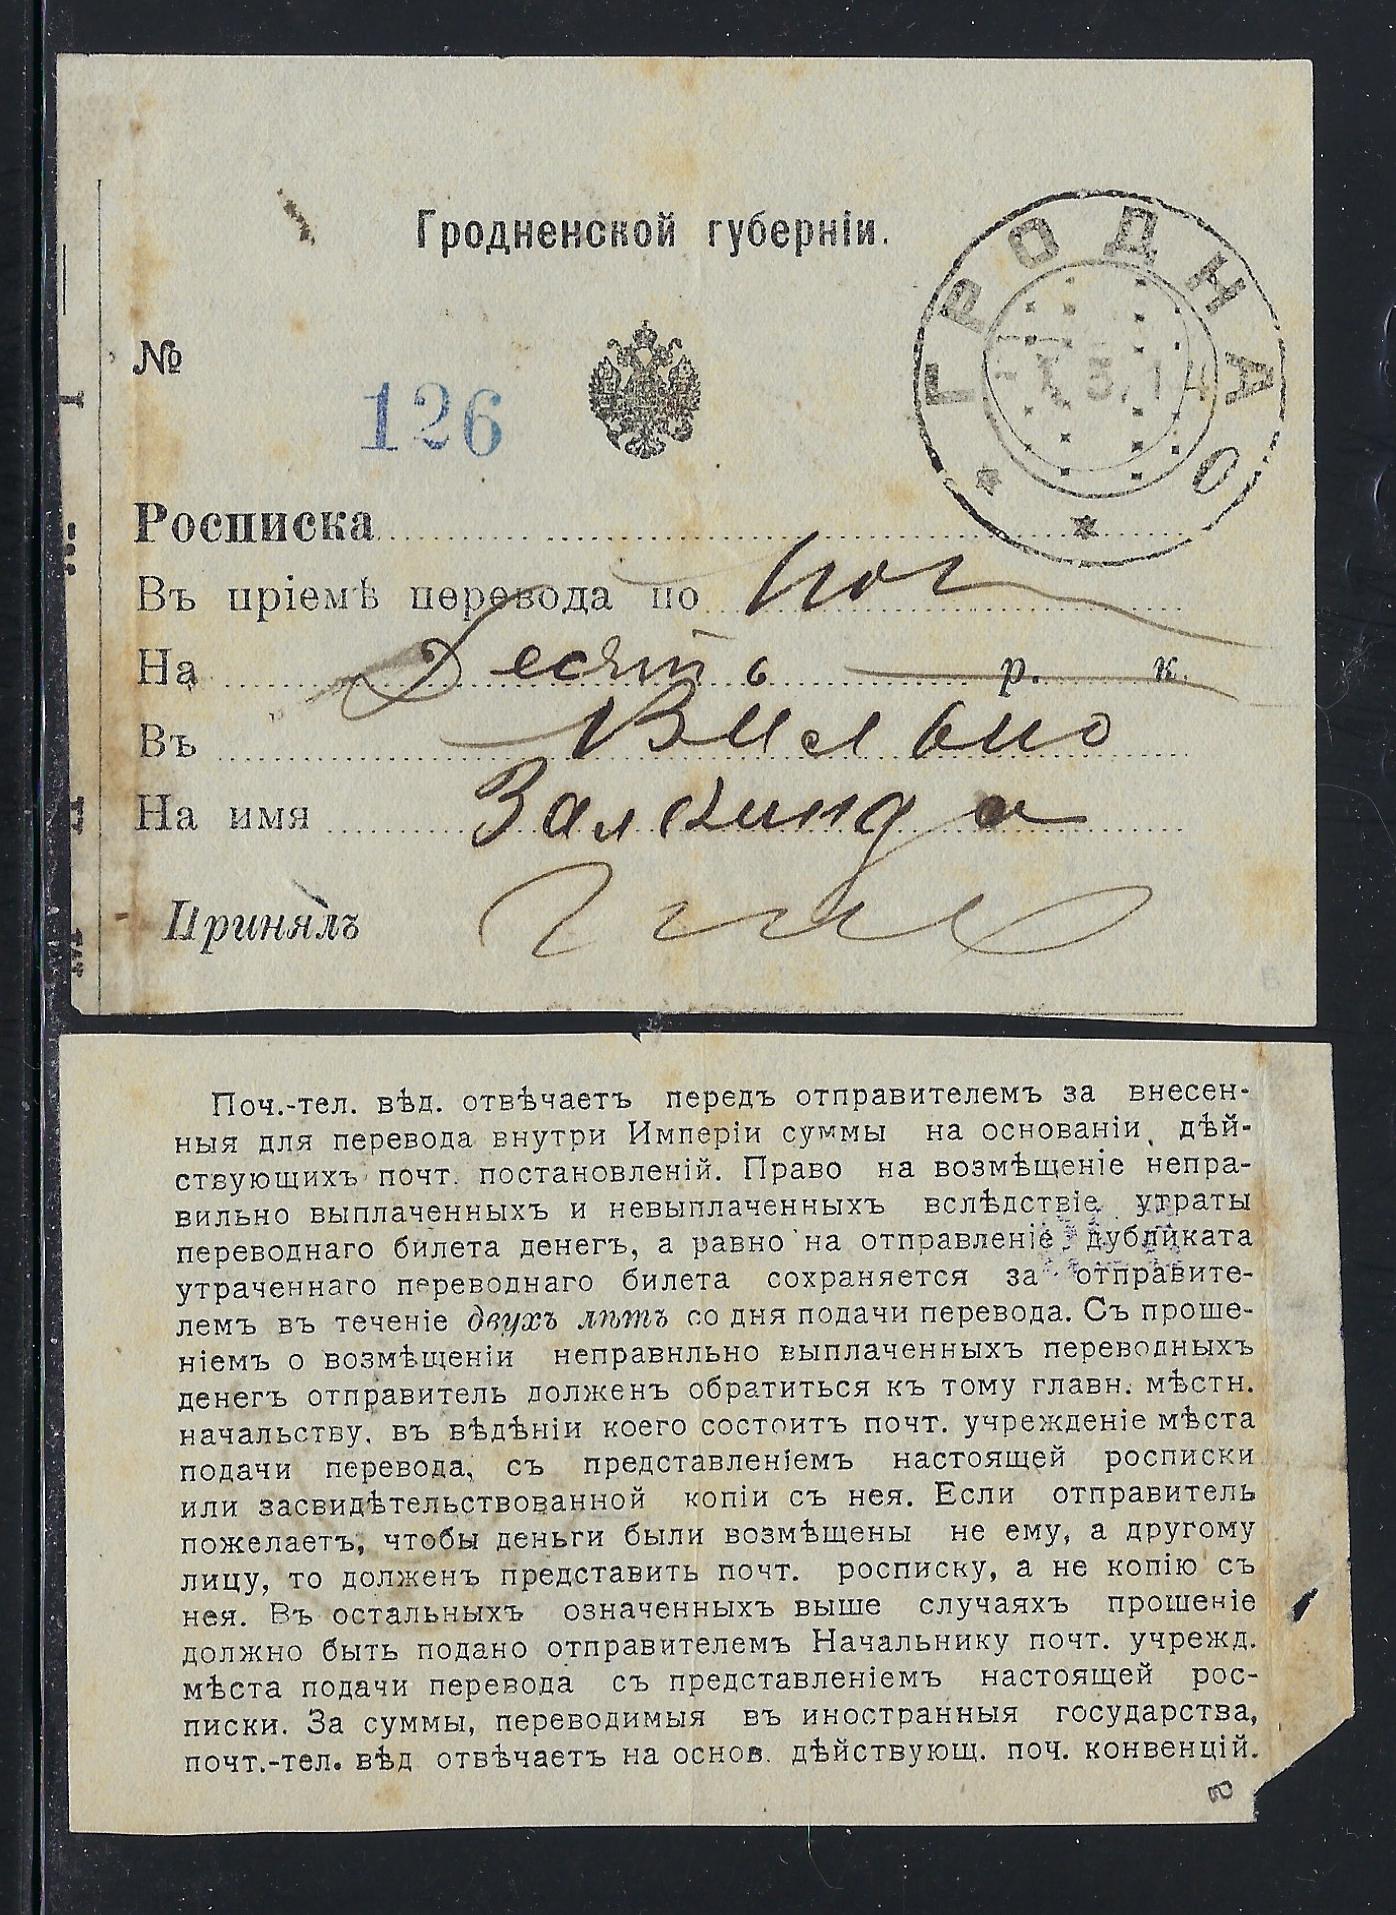 Гродненской губерніи.
ГРОДНО
№
126
Росписка
Въ пріемѣ перевода по поч
На Десять р. к.
Въ Вильно
На имя Залкинда
Принялъ
Поч.-тел. вѣд. отвѣчаетъ передъ отправителемъ за внесен-
ныя для перевода внутри Имперіи суммы на основаніи дѣй-
ствующихъ почт. постановленій. Право на возмѣщеніе непра-
вильно выплаченныхъ и невыплаченныхъ вслѣдствіе утраты
переводнаго билета денегъ, а равно на отправленіе дубликата
утраченнаго переводнаго билета сохраняется за отправите-
лемъ въ теченіе двухъ лѣтъ со дня подачи перевода. Съ проше-
ніемъ о возмѣщеніи неправильно выплаченныхъ переводныхъ
денегъ отправитель долженъ обратиться къ тому главн. мѣстн.
начальству, въ вѣдѣніи коего состоитъ почт. учрежденіе мѣста
подачи перевода, съ представленіемъ настоящей росписки
или засвидѣтельствованной копіи съ нея. Если отправитель
пожелаетъ, чтобы деньги были возмѣщены не ему, а другому
лицу, то долженъ представить почт. росписку, а не копію съ
нея. Въ остальныхъ означенныхъ выше случаяхъ прошеніе
должно быть подано отправителемъ Начальнику почт. учрежд.
мѣста подачи перевода съ представленіемъ настоящей рос-
писки. За суммы, переводимыя въ иностранныя государства,
почт.-тел. вѣд отвѣчаетъ на основ. дѣйствующ. поч. конвенцій.